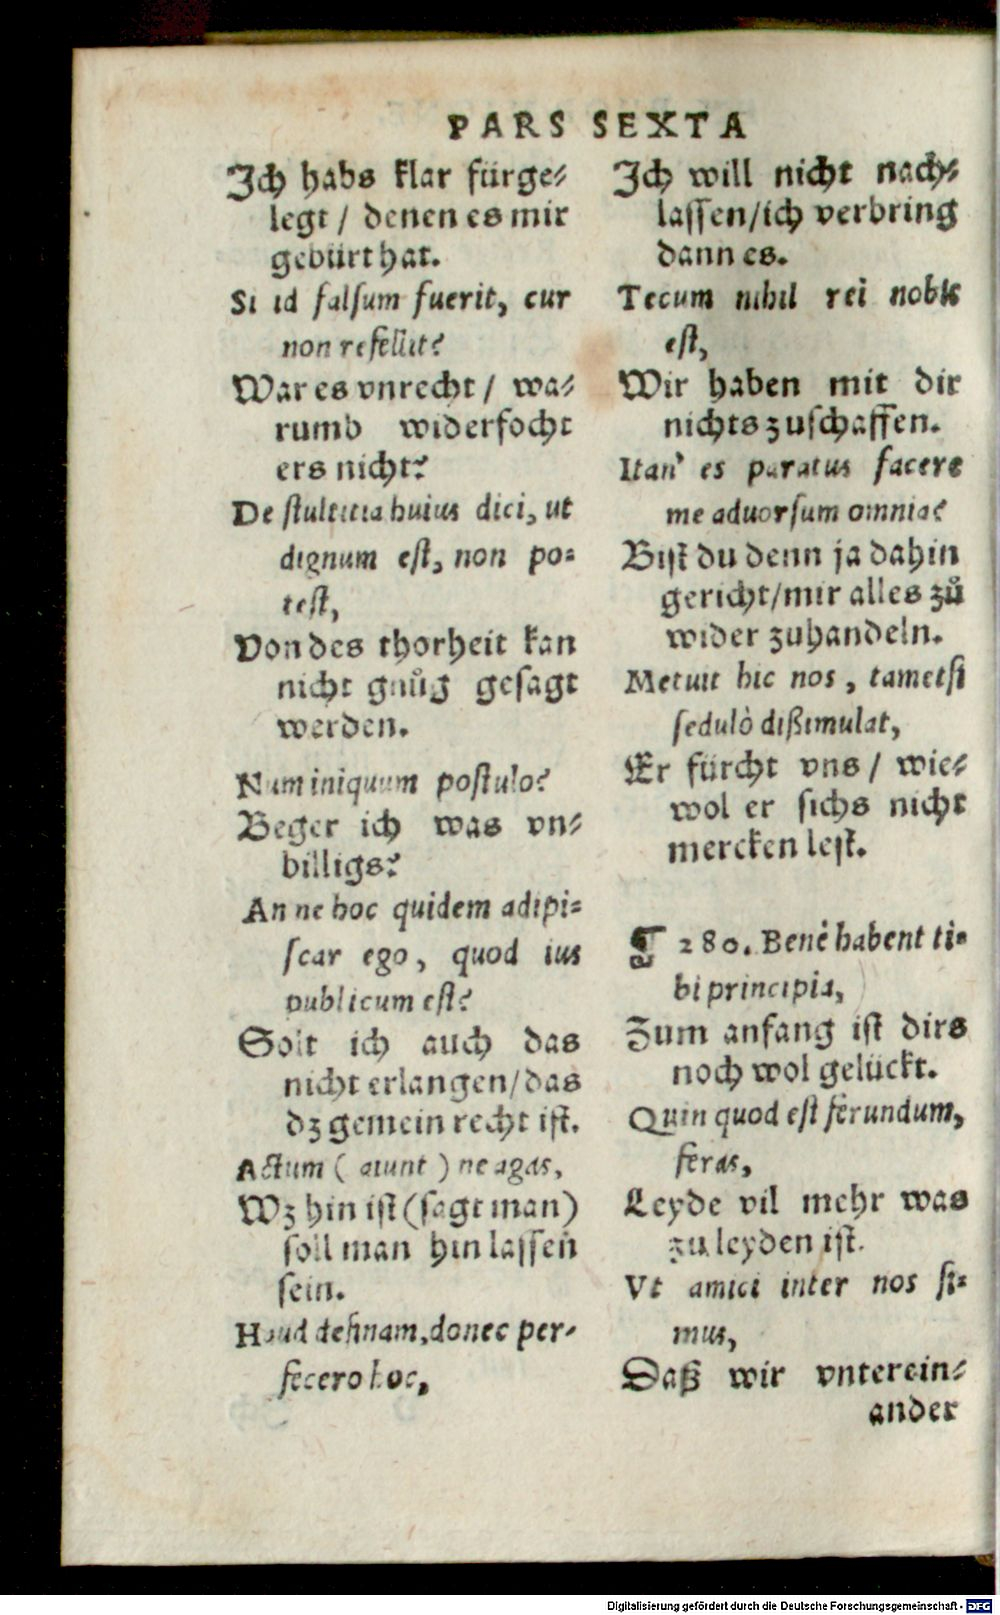 PARS SEXTA
Ich habs klar fürge⸗
legt / denen es mir
gebürt hat.
Si id falsum fuerit, cur
non refellit?
War es vnrecht / wa⸗
rumb widerfocht
ers nicht?
De stultitia huius dici, ut
dignum est, non po⸗
test,
Von des thorheit kan
nicht gnůg gesagt
werden.
Num iniquum postulo?
Beger ich was vn⸗
billigs?
An ne hoc quidem adipi⸗
scar ego, quod ius
publicum est?
Solt ich auch das
nicht erlangen/das
dz gemein recht ist.
Actum ( aiunt ) ne agas,
Wz hin ist (sagt man)
soll man hin lassen
sein.
Haud desinam, donec per⸗
fecero hoc,
Ich will nicht nach⸗
lassen/ich verbring
dann es.
Tecum nihil rei nobis
est,
Wir haben mit dir
nichts zuschaffen.
Itan' es paratus facere
me aduorsum omnia?
Bist du denn ja dahin
gericht/mir alles zů
wider zuhandeln.
Metuit hic nos, tametsi
sedulò dißimulat,
Er fürcht vns / wie⸗
wol er sichs nicht
mercken lest.
¶ 280. Benè habent ti⸗
bi principia,
Zum anfang ist dirs
noch wol gelückt.
Quin quod est ferundum,
feras,
Leyde vil mehr was
zu leyden ist.
Vt amici inter nos si⸗
mus,
Daß wir vnterein⸗
ander
Digitalisierung gefördert durch die Deutsche Forschungsgemeinschaft - DFG